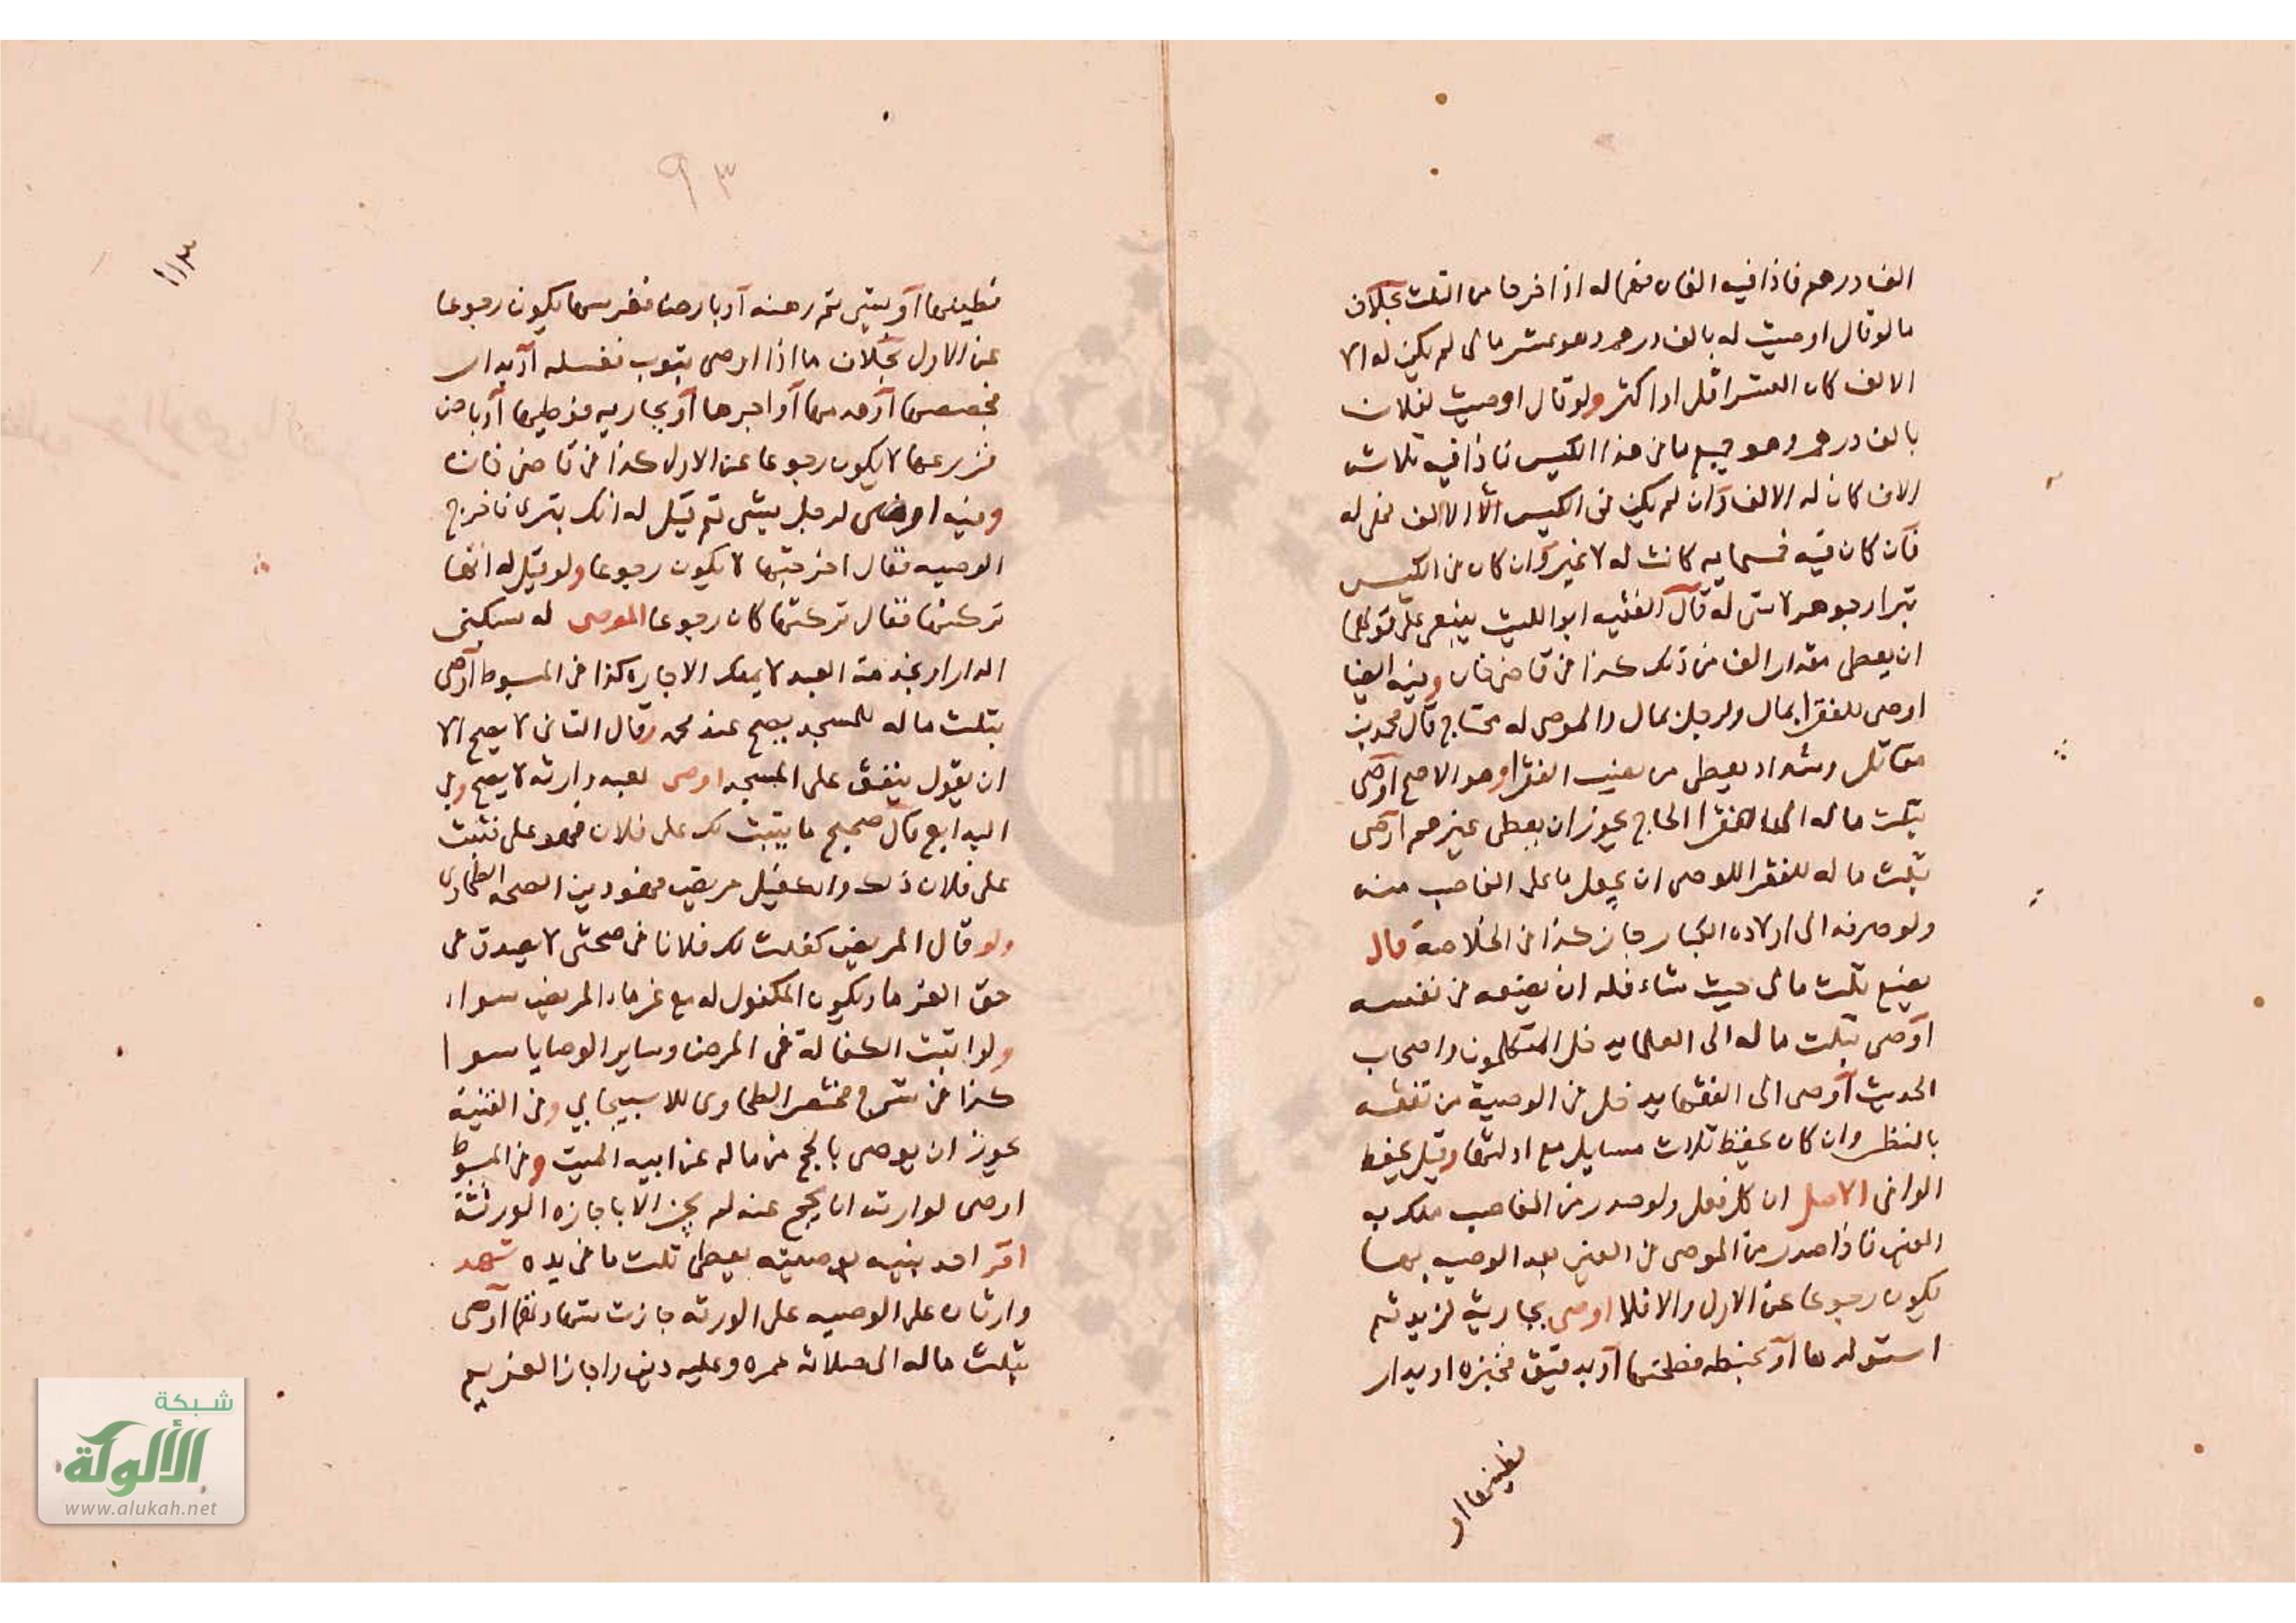 الف درهم فاذا فيه الفان فهما له اذا خرجا من الثلث بخلاف
ما لو قال اوصيت له بالف درهم وهو عشر مالي لم يكن له الا
الالف كان العشر اقل او اكثر ولو قال اوصيت لفلان
بالف درهم وهو جميع ما في هذا الكيس فاذا فيه ثلاثة
الاف كان له الالف وان لم يكن في الكيس الا الالف فهي له
فان كان فيه خمسماية كانت له لا غير وان كان في الكيس
له قال الفقيه ابو الليث ينبغي على قولهما
ان يعطى مقدار الف من ذلك كذا في قاضي خان وفيه ايضا
اوصى للفقرا بمال ولرجل بمال والموصى له محتاج قال محمد بن
مقاتل وشداد يعطى من نصيب الفقرا وهو الاصح اوصى
بثلث ماله الى فقرا الحاج يجوز ان يعطى غيرهم اوصى
بثلث ماله للفقرا للوصي ان يجعل ما على الغاصب منه
ولو صرفه الى اولاده الكبار جاز كذا في الخلاصة قال
يضع ثلث مالي حيث شاء فله ان يضعه في نفسه
اوصى بثلث ماله الى العلما يدخل المتكلمون واصحاب
الحديث اوصى الى الفقها يدخل في الوصية من تفقه
بالنظر وان كان يحفظ ثلاث مسايل مع ادلتها وقيل يحفظ
الوافي الاصل ان كل فعل ولو صدر من الغاصب ملك به
العين فاذا صدر من الموصي في العين بعد الوصيه بها
يكون رجوعا عن الاول والا فلا اوصى بجارية لزيد ثم
استولدها او بحنطه فطحنها او بدقيق فخبزه او بدار
فطينها او
٩٣
١١٣
فطينها او بشي ثم رهنه او بارض فغرسها يكون رجوعا
عن الاول بخلاف ما اذا اوصى بثوب فغسله او بدار
فجصصها او هدمها او اجرها او بجاريه فوطيها او بارض
فزرعها لا يكون رجوعا عن الاول كذا في قاضي خان
وفيه اوصى لرجل بشي ثم قيل له انك تبرى فاخرج
الوصيه فقال اخرجتها لا يكون رجوعا ولو قيل له انها
تركتها فقال تركتها كان رجوعا الموصى له بسكنى
الدار او بخدمة العبد لا يملك الاجاره كذا في المبسوط اوصى
بثلث ماله للمسجد يصح عند محمد وقال الثاني لا يصح الا
ان يقول ينفق على المسجد اوصى لعبد وارثه لا يصح وفي
البدايع قال صحيح ما يثبت لك على فلان فهو علي فثبت
على فلان ذلك والكفيل مريض فهو دين الصحه الطحاوي
ولو قال المريض كفلت لك فلانا في صحتي لا يصدق في
حق الغرما ويكون المكفول له مع غرماء المريض سواء
ولو اثبت الكفالة في المرض وساير الوصايا سوا
كذا في شرح مختصر الطحاوي للاسبيجابي وفي القنية
يجوز ان يوصي بالحج من ماله عن ابيه الميت وفي المبسوط
اوصى لوارث ان يحج عنه لم يجز الا باجازه الورثة
اقر احد بنيه بوصيته يعطي ثلث ما في يده شهد
وارثان على الوصيه على الورثه جازت شهادتهما اوصى
بثلث ماله الى صلاة عمره وعليه دين واجاز الغريم
شبكة
الألوكة
www.alukah.net